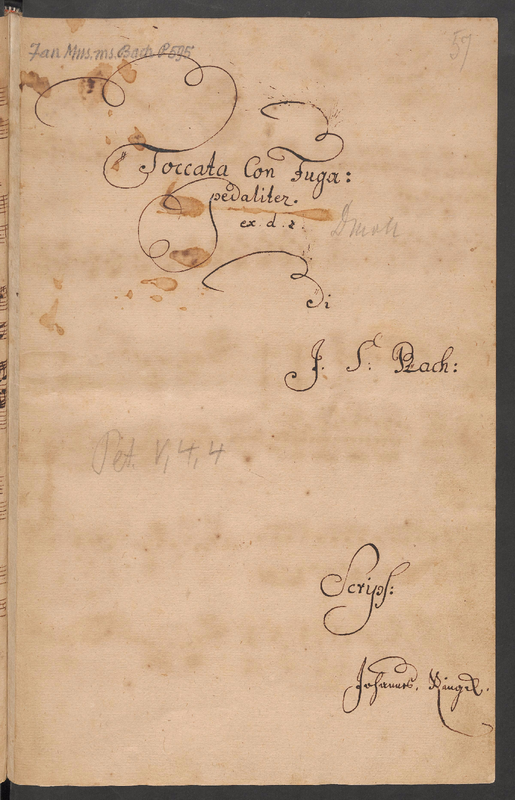 Zan Mus.ms. Bach P 595
57
Toccata Con Fuga:
pedaliter.
ex. d. #.
Dmoll
Di
J. S. Bach:
Pet. V, 4, 4
Scrips:
Johannes. Ringk.